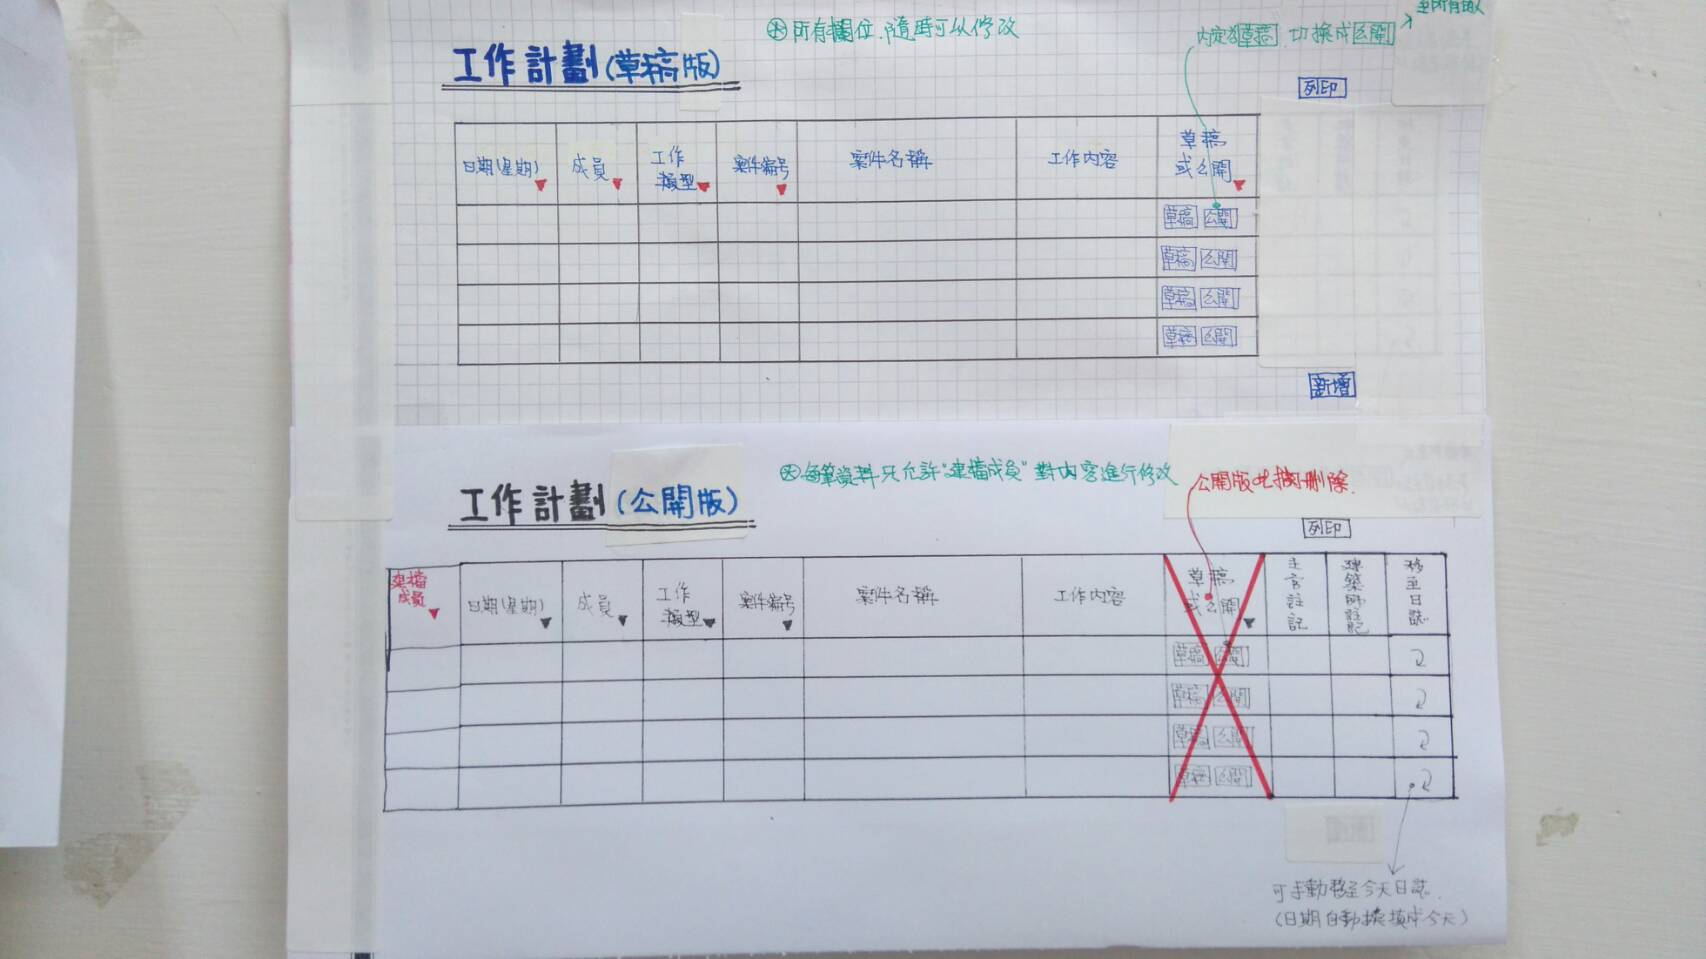 工作計劃(草稿版)
⊗所有欄位、隨時可以修改
內定為草稿 切換成公開
列印
日期(星期)
成員
工作
類型
案件編号
案件名稱
工作內容
草稿
或公開
草稿 公開
草稿 公開
草稿 公開
草稿 公開
新增
工作計劃(公開版)
⊗每筆資料只允許"建檔成員"對內容進行修改
公開版此欄刪除.
列印
建檔
成員
日期(星期)
成員
工作
類型
案件編号
案件名稱
工作內容
草稿
或公開
註記
建築師註記
移至日誌
草稿 公開
草稿 公開
草稿 公開
草稿 公開
可手動移至今天日誌.
(日期自動換填成今天)